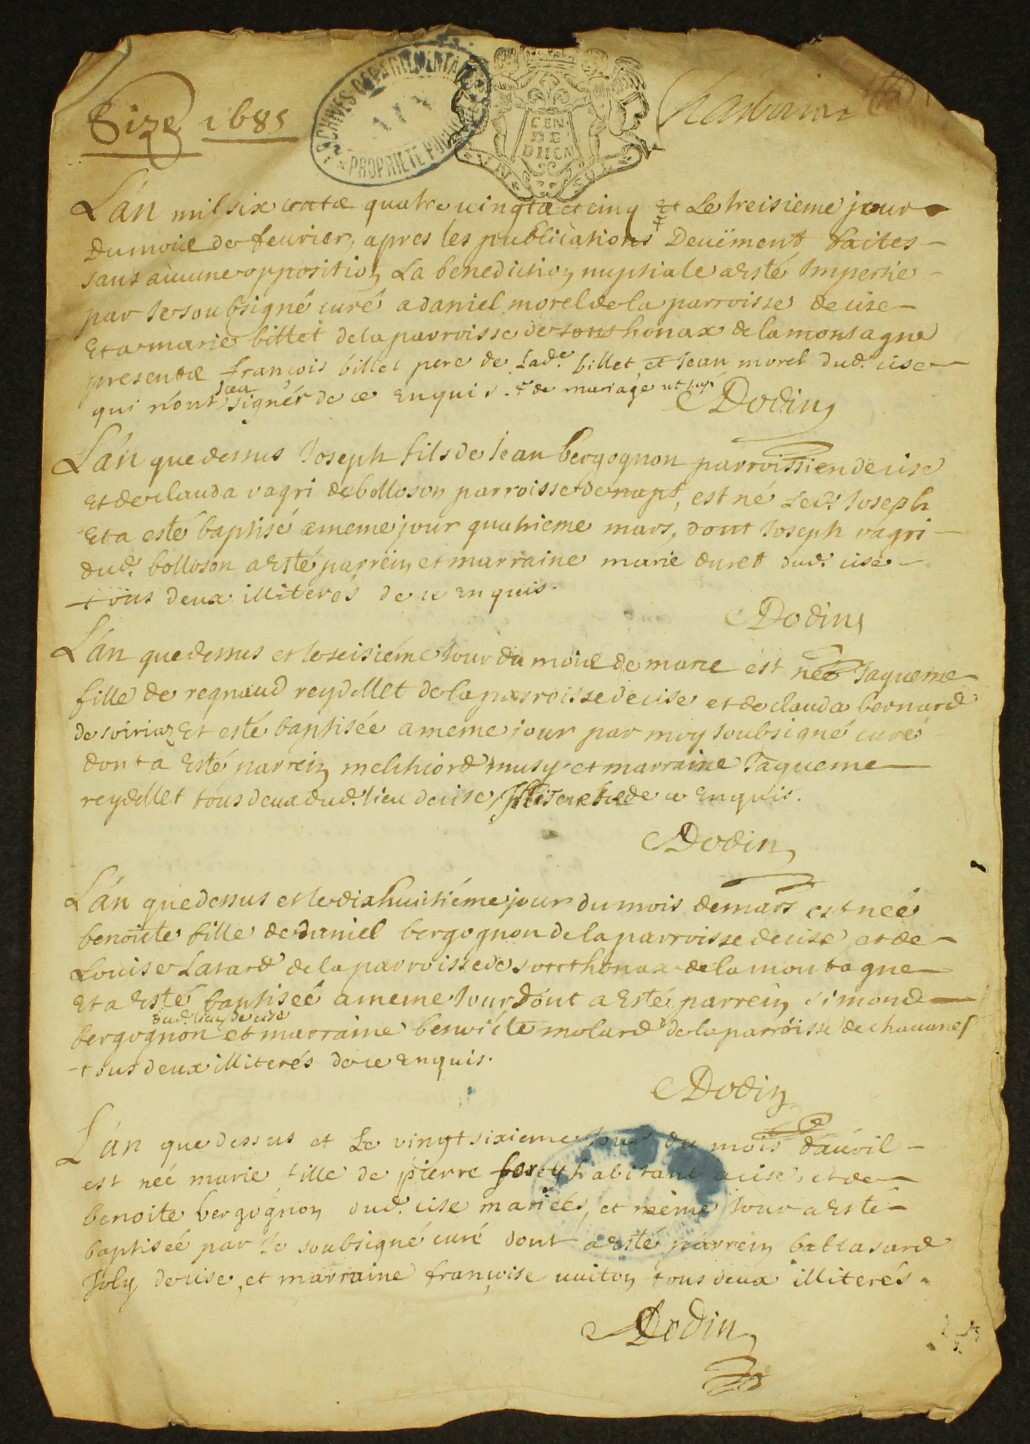 Size 1685
ARCHIVES DEPARTEMENTALES
PROPRIETE PUBLIQUE
GEN
DE
DUCA
UN SOL
L'an mil six centz quatre vingtz et cinq et Le treisieme jour
du mois de fevrier, apres les publications Deuëment faites
sans aucune opposition La benediction nuptiale a esté Impertie
par Je soubsigné curé a daniel morel de la parroisse de cise
Et a marie billet de la parroisse de sonthonax de la montagne
presentz françois billet pere de Lade billet et Jean morel dud. cise
qui n'ont sceu signer de ce Enquis. de mariage ut sup
Dodin
L'an que dessus Joseph fils de Jean bergognon parroissien de cise
Et de clauda vagri de bolloson parroisse de napt, est né Led. Joseph
Et a esté baptisé a meme jour quatrieme mars, dont Joseph vagri
dud. bolloson a Esté parrein et marraine marie duret dud. cise
tous deux illiterés de ce enquis.
Dodin
L'an que dessus et le seisieme Jour du mois de mars est née Jaqueme
fille de regnaud reydellet de la parroisse de cise et de clauda bernard
de soiriaz Et esté baptisée a meme jour par moy soubsigné curé
dont a Esté parrein melchiord musy et marraine Jaqueme
reydellet tous deux dud. lieu de cise Illiterés de ce Enquis.
Dodin
L'an que dessus et le dix huitiéme jour du mois de mars est neé
benoiste fille de daniel bergognon de la parroisse de cise et de
Louise Lavard de la parroisse de sontthonax de la montagne
Et a Esté baptisée a meme Jour dont a Esté parrein simond
dud. lieu de cise
bergognon et marraine benoicte molard de la parroisse de chavanes
tous deux illiterés de ce enquis.
Dodin
L'an que dessus et Le vingt sixieme Jour du mois d'avril
est née marie fille de pierre ferey habitant a cise, et de
benoite bergognon dud. cise mariés, et même Jour a Esté
baptisée par Je soubsigné curé dont a esté parrein baltasard
Joly de cise, et marraine françoise tous deux illiterés.
Dodin